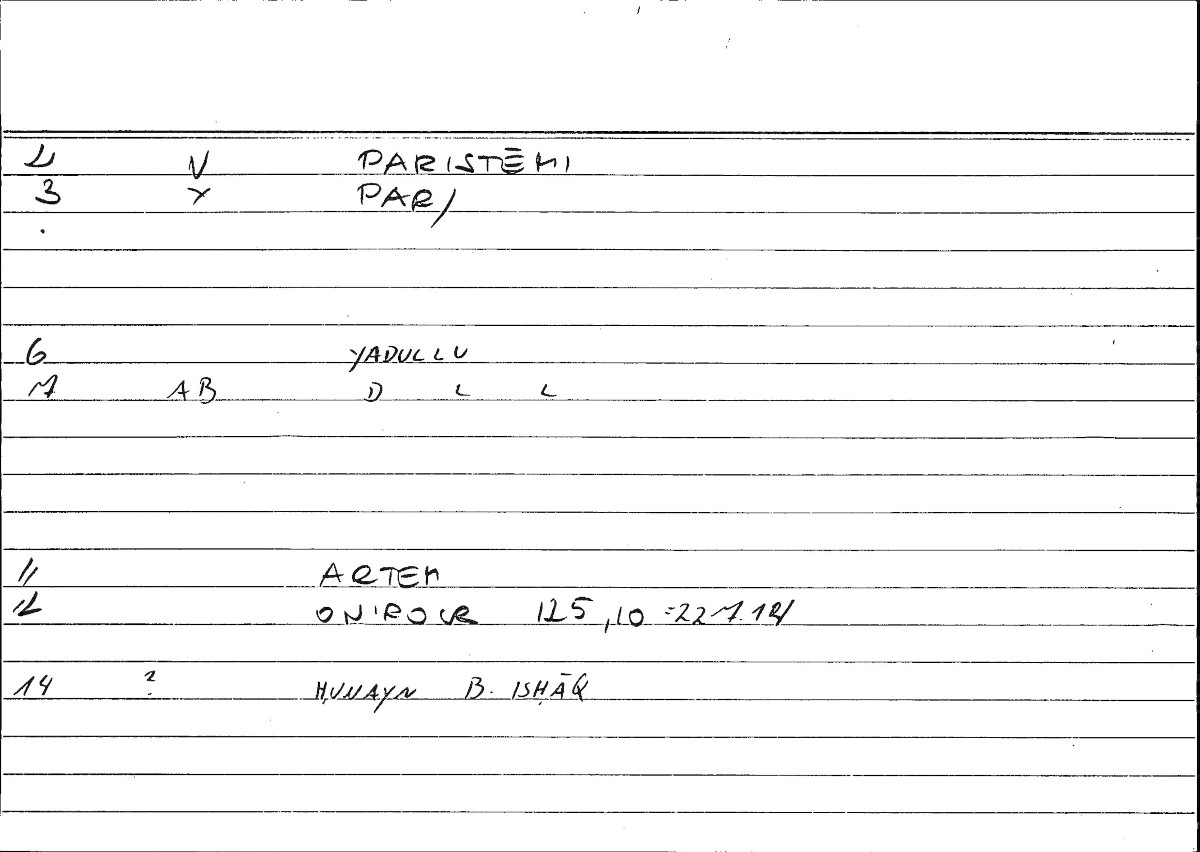 2 V PARISTĒMI
3 Y PAR/
6 YADULLU
7 AB D L L
11 ARTEM
12 ONIROCR 125,10
14 ? ḤUNAYN B. ISḤĀQ